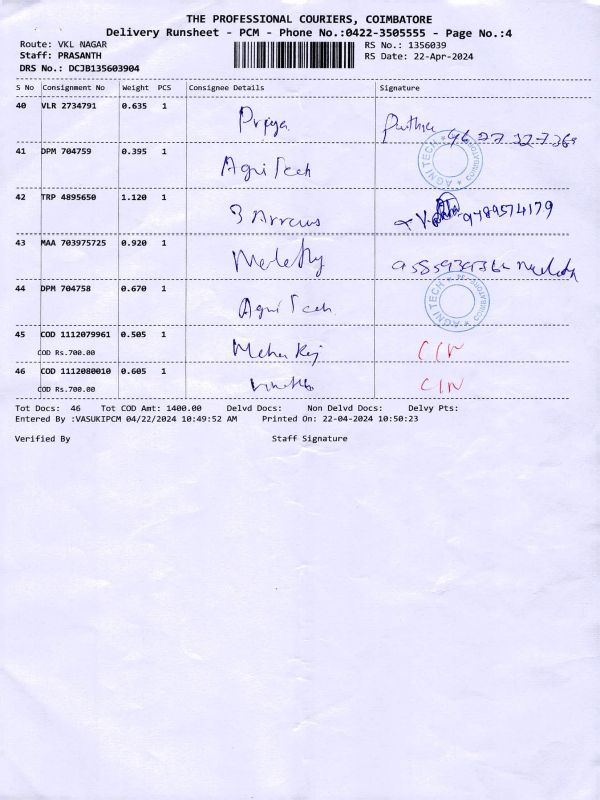 THE PROFESSIONAL COURIERS, COIMBATORE
Delivery Runsheet - PCM - Phone No.:0422-3505555 - Page No.:4
Route: VKL NAGAR
RS No.: 1356039
Staff: PRASANTH
RS Date: 22-Apr-2024
DRS No.: DCJB135603904
S No Consignment No Weight PCS Consignee Details Signature
40 VLR 2734791 0.635 1 Priya
41 DPM 704759 0.395 1 Agni Tech
AGNI TECH COIMBATORE
42 TRP 4895650 1.120 1 3 Arrows 9489574179
43 MAA 703975725 0.920 1
44 DPM 704758 0.670 1 Agni Tech
AGNI TECH COIMBATORE
45 COD 1112079961 0.505 1
COD Rs.700.00
46 COD 1112080010 0.605 1
COD Rs.700.00
Tot Docs: 46 Tot COD Amt: 1400.00 Delvd Docs: Non Delvd Docs: Delvy Pts:
Entered By :VASUKIPCM 04/22/2024 10:49:52 AM Printed On: 22-04-2024 10:50:23
Verified By Staff Signature